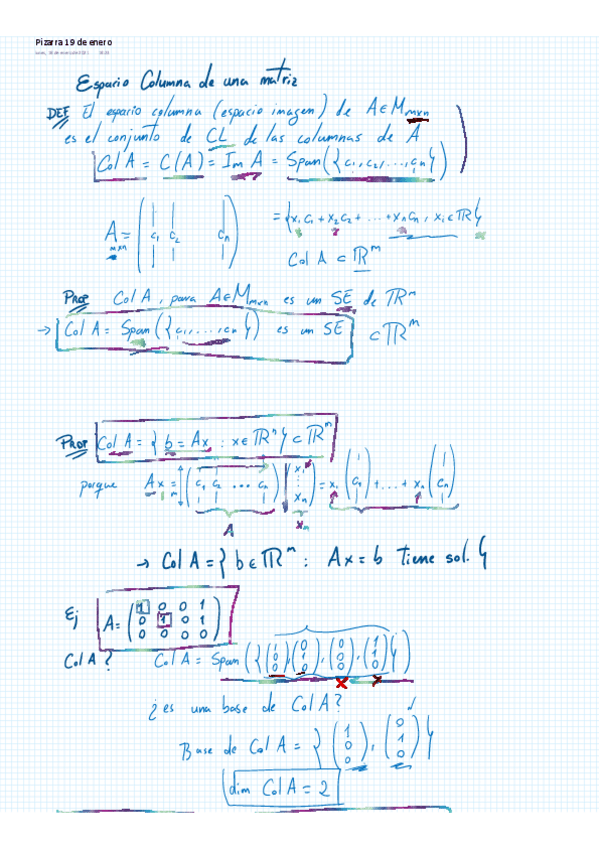 Pizarra 19 de enero
Espacio Columna de una matriz
DEF El espacio columna (espacio imagen) de A∈Mmxn
es el conjunto de CL de las columnas de A
Col A = C(A) = Im A = Span({c₁,c₂,...,cₙ})
A = ( c₁ c₂ cₙ )
mxn
= {x₁c₁+x₂c₂+...+xₙcₙ, xᵢ∈ℝ}
Col A ⊂ ℝᵐ
Prop Col A, para A∈Mmxn es un SE de ℝᵐ
→ Col A = Span({c₁,...,cₙ}) es un SE ⊂ℝᵐ
Prop Col A = { b = Ax : x∈ℝⁿ} ⊂ ℝᵐ
porque Ax = m ( c₁ c₂ ... cₙ ) ( x₁ ⋮ xₙ ) = x₁ ( c₁ ) + ... + xₙ ( cₙ )
A
→ Col A = { b∈ℝᵐ : Ax = b tiene sol. }
Ej A = ( 1 0 0 1
0 1 0 1
0 0 0 0 )
Col A? Col A = Span({ (1 0 0), (0 1 0), (0 0 0), (1 1 0) })
¿es una base de Col A?
Base de Col A = { (1 0 0), (0 1 0) }
dim Col A = 2